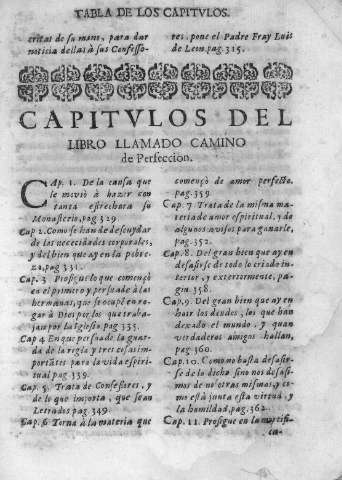 TABLA DE LOS CAPITVLOS.
critas de su mano, para dar
noticia dellas à sus Confesso-
res, pone el Padre Fray Luis
de Leon. pag. 315.
CAPITVLOS DEL
LIBRO LLAMADO CAMINO
de Perfeccion.
CAp. 1. De la causa que
le moviò à hazer con
tanta estrechura su
Monasterio, pag 329
Cap 2. Como se han de descuydar
de las necesidades corporales,
y del bien que ay en la pobre-
za, pag 331.
Cap. 3 Prosigue lo que començò
en el primero y persuade à las
hermanas, que se ocupẽ en ro-
gar à Dios por los que traba-
jan por la Iglesia. pag 335.
Cap 4 En que persuade la guar-
da de la regla y tres cosas im-
portãtes para la vida espiri-
tual pag 339.
Cap. 5. Trata de Confessores, y
de lo que importa, que sean
Letrados pag 349.
Cap. 6. Torna à la materia que
començò de amor perfecto.
pag. 359
Cap. 7 Trata de la misma ma-
teria de amor espiritual, y da
algunos avisos para ganarle,
pag. 352.
Cap. 8. Del gran bien que ay en
desasirse de todo lo criado in-
terior, y exteriormente, pa-
gin 358.
Cap. 9. Del gran bien que ay en
huir los deudos, los que han
dexado el mundo, y quan
verdaderos amigos hallan,
pag 360.
Cap. 10. Como no basta desasir-
se de lo dicho sino nos desasi-
mos de nosotras mismas, y co-
mo està junta esta virtud, y
la humildad, pag. 362.
Cap. 11. Prosigue en la mortifi-
ca-